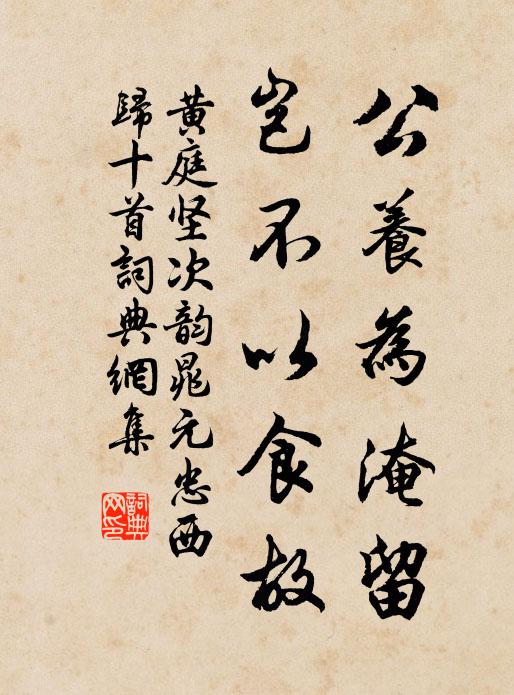 公養為淹留
豈不以食故
黄庭坚次韵晁元忠西
歸十首詞典網集
詞典
网印